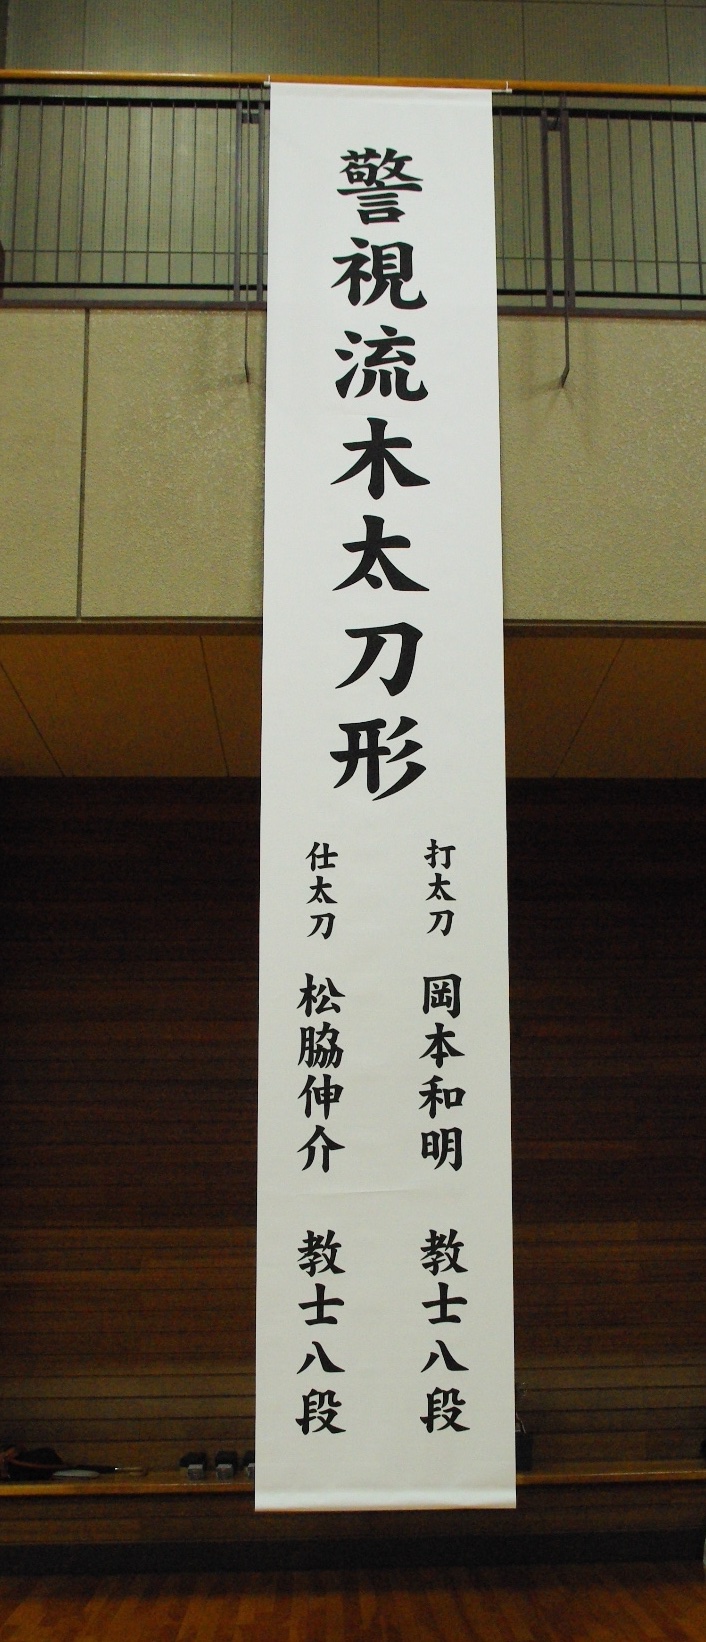 警視流木太刀形
打太刀 岡本和明 教士八段
仕太刀 松脇伸介 教士八段